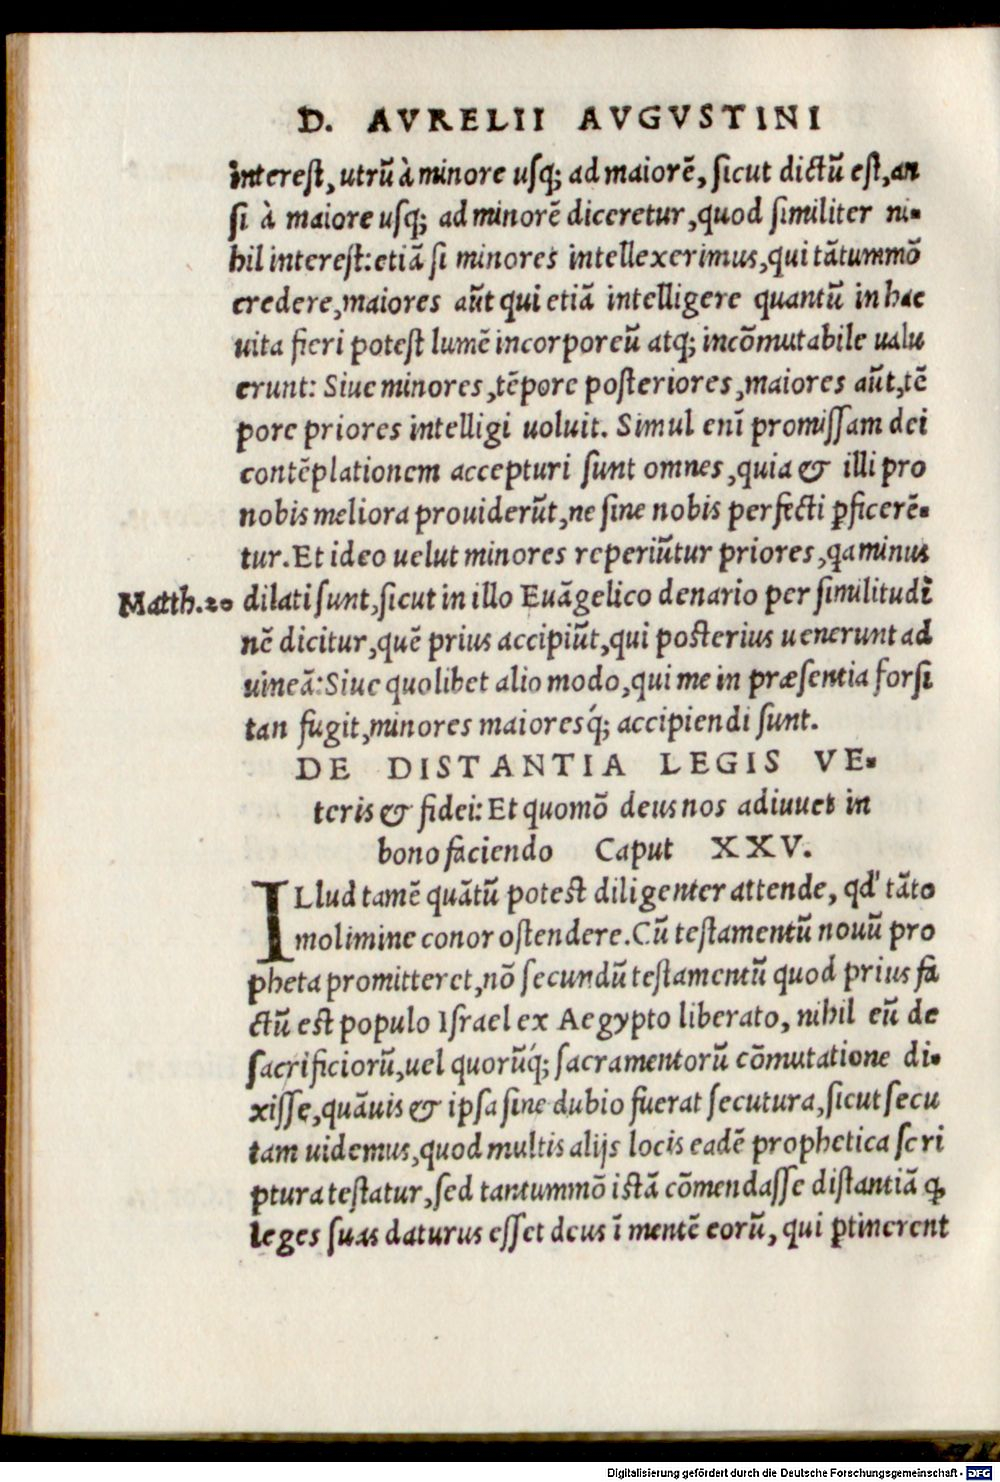 D. AVRELII AVGVSTINI
interest, utrũ à minore usq; ad maiorẽ, sicut dictũ est, an
si à maiore usq; ad minorẽ diceretur, quod similiter ni-
hil interest: etiã si minores intellexerimus, qui tãtummõ
credere, maiores aũt qui etiã intelligere quantũ in hac
uita fieri potest lumẽ incorporeũ atq; incõmutabile ualu
erunt: Siue minores, tẽpore posteriores, maiores aũt, tẽ
pore priores intelligi uoluit. Simul enĩ promissam dei
contẽplationem accepturi sunt omnes, quia & illi pro
nobis meliora prouiderũt, ne sine nobis perfecti ꝑficerẽ-
tur. Et ideo uelut minores reperiũtur priores, qa minus
Matth. 20 dilati sunt, sicut in illo Euãgelico denario per similitudĩ
nẽ dicitur, quẽ prius accipiũt, qui posterius uenerunt ad
uineã: Siue quolibet alio modo, qui me in præsentia forsi
tan fugit, minores maioresq́; accipiendi sunt.
DE DISTANTIA LEGIS VE-
teris & fidei: Et quomõ deus nos adiuuet in
bono faciendo Caput XXV.
ILlud tamẽ quãtũ potest diligenter attende, qd' tãto
molimine conor ostendere. Cũ testamentũ nouũ pro
pheta promitteret, nõ secundũ testamentũ quod prius fa
ctũ est populo Israel ex Aegypto liberato, nihil eũ de
sacrificiorũ, uel quorũq́; sacramentorũ cõmutatione di-
xisse, quãuis & ipsa sine dubio fuerat secutura, sicut secu
tam uidemus, quod multis alijs locis eadẽ prophetica scri
ptura testatur, sed tantummõ istã cõmendasse distantiã ꝙ
leges suas daturus esset deus ĩ mentẽ eorũ, qui ꝑtinerent
Digitalisierung gefördert durch die Deutsche Forschungsgemeinschaft - DFG